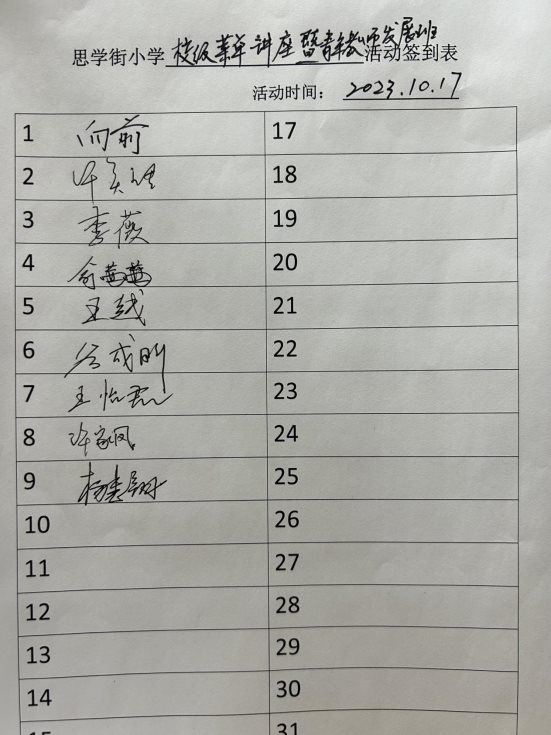 思学街小学校级菜单讲座暨青年教师发展班活动签到表
活动时间：2023.10.17
1 向前 17
2 18
3 李薇 19
4 俞茜茜 20
5 王越 21
6 谷成刚 22
7 王怡君 23
8 许家凤 24
9 25
10 26
11 27
12 28
13 29
14 30
15 31